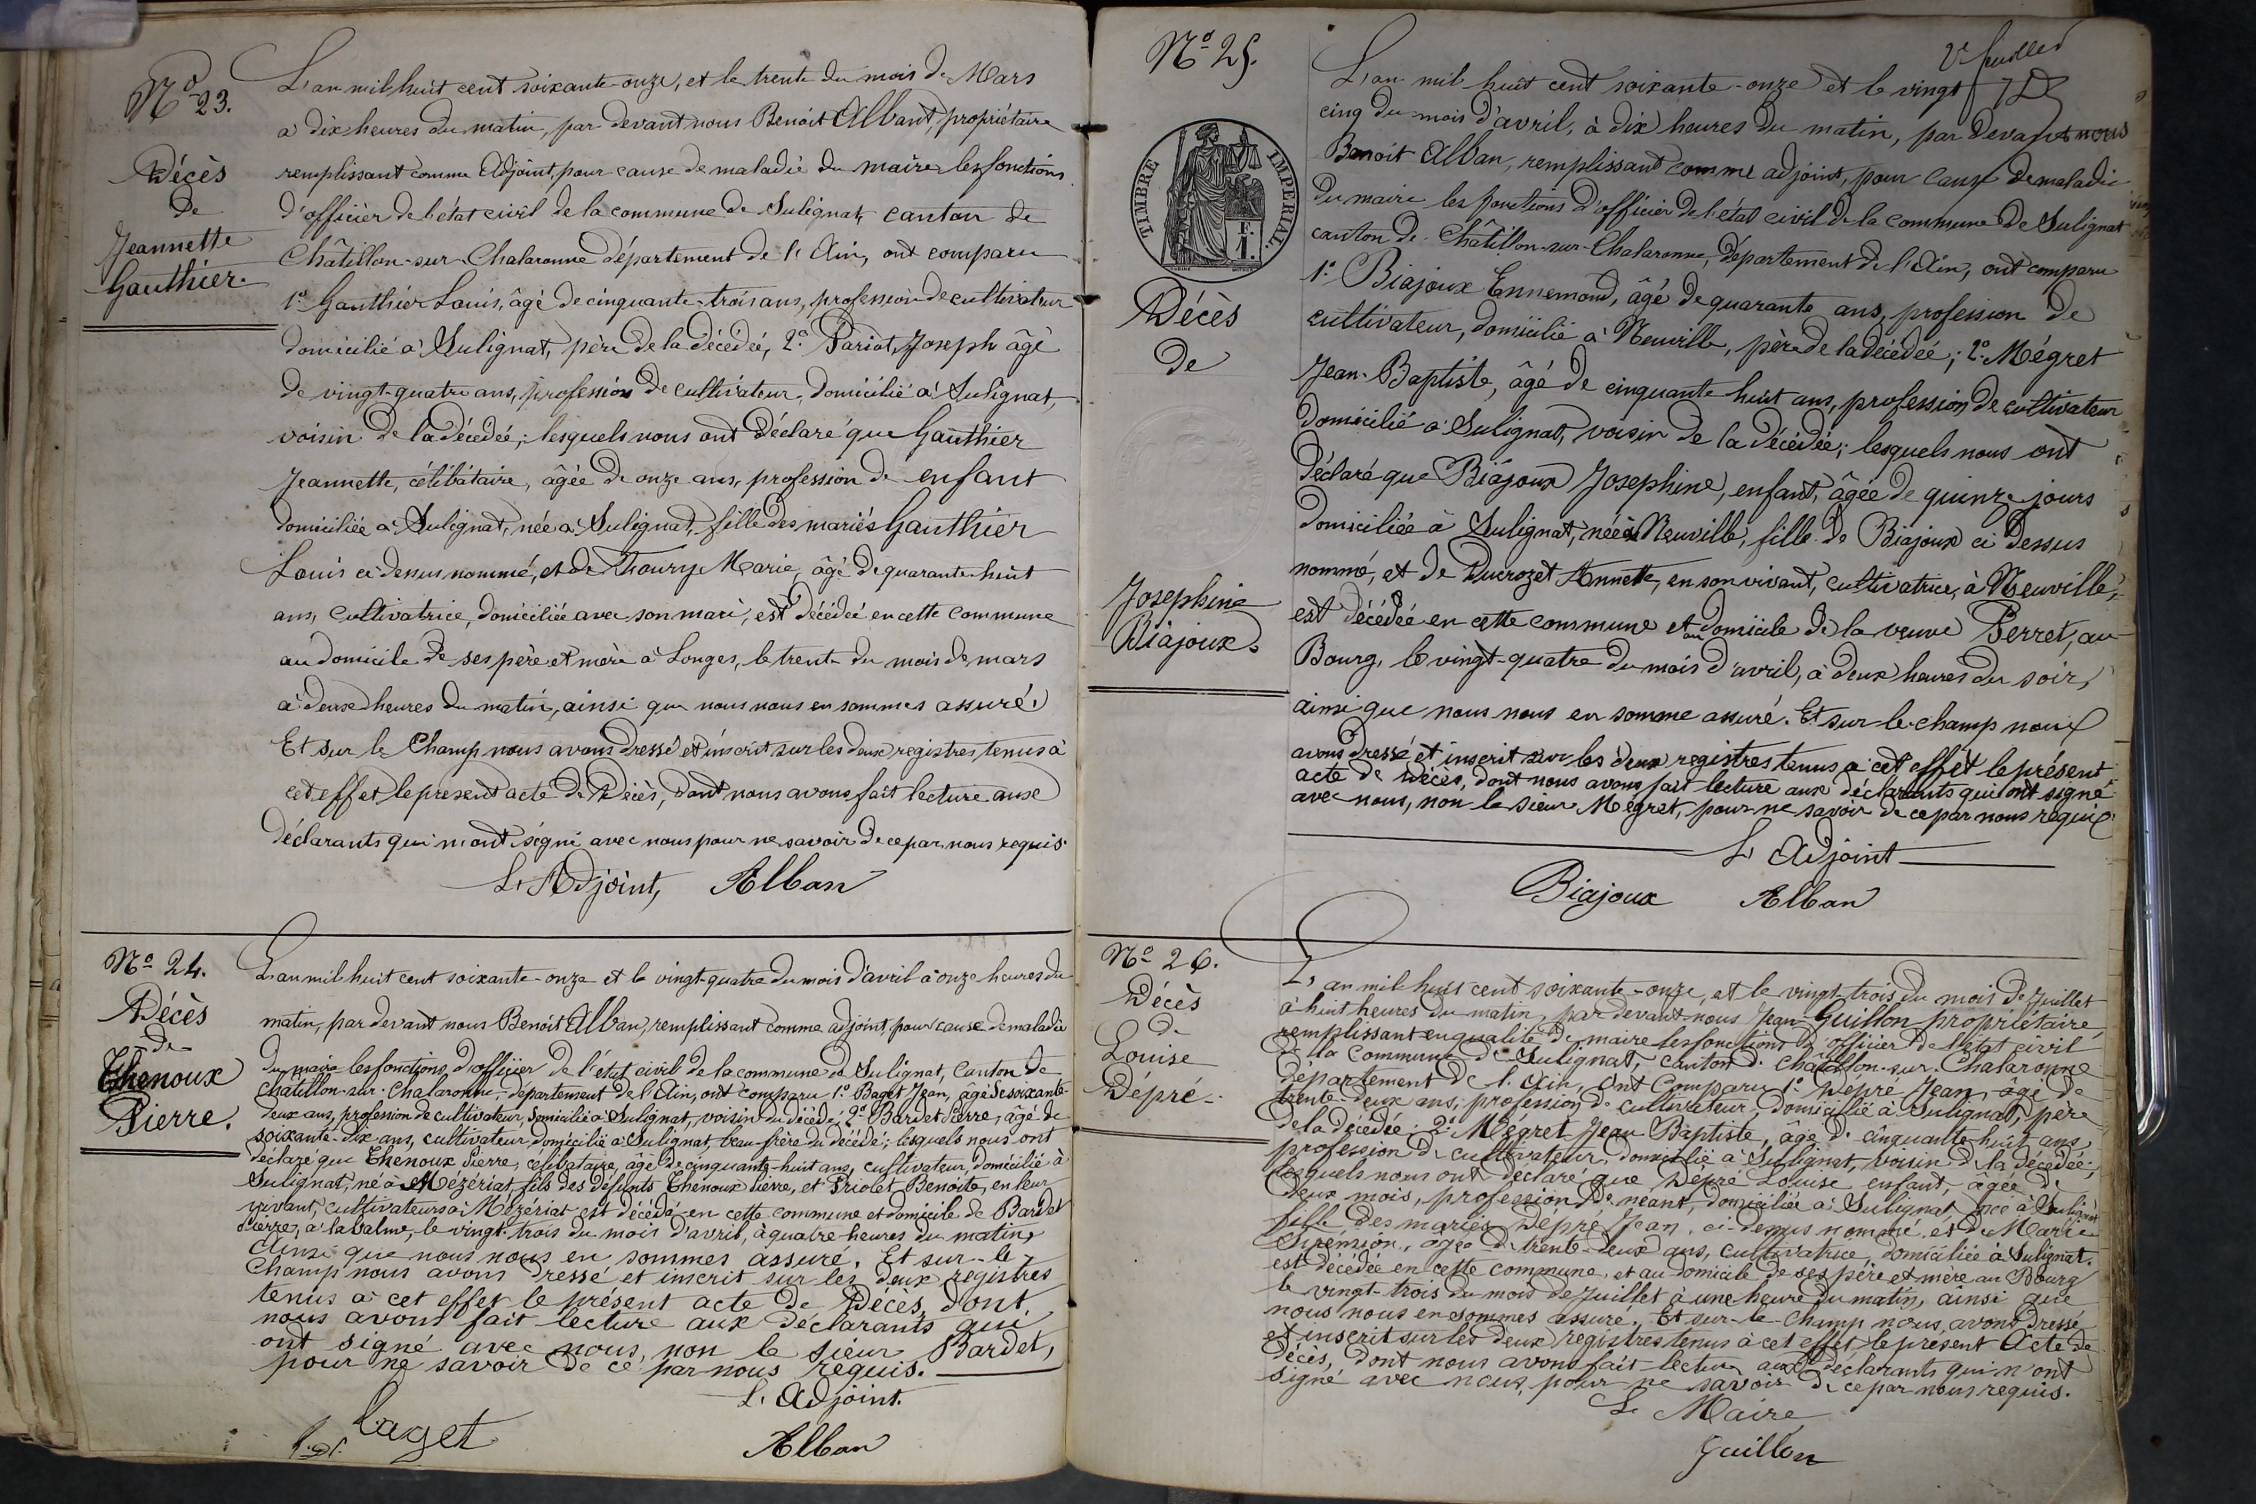 Nº 23.
Décès
de
Jeannette
Gauthier.
L'an mil huit cent soixante-onze, et le trente du mois de Mars
à dix heures du matin, par devant nous Benoit Alban, propriétaire
remplissant comme Adjoint, pour cause de maladie du maire les fonctions
d'officier de l'état civil de la commune de Sulignat, canton de
Châtillon-sur-Chalaronne département de l'Ain, ont comparu
1º Gauthier Louis, âgé de cinquante-trois ans, profession de cultivateur
domicilié à Sulignat, père de la décédée, 2º Pariot, Joseph âgé
de vingt-quatre ans, profession de cultivateur, domicilié à Sulignat,
voisin de la décédée; lesquels nous ont déclaré que Gauthier
Jeannette, célibataire, âgée de onze ans, profession de enfant
domiciliée à Sulignat, née à Sulignat, fille des mariés Gauthier
Louis ci-dessus nommé, et de Marie, âgé de quarante-huit
ans, cultivatrice, domiciliée avec son mari, est décédée en cette commune
au domicile de ses père et mère à Longes, le trente du mois de mars
à deux heures du matin, ainsi que nous nous en sommes assuré.
Et sur le Champ nous avons dressé et inscrit sur les deux registres tenus à
cet effet le present acte de Décès, dont nous avons fait lecture aux
déclarants qui n'ont signé avec nous pour ne savoir de ce par nous requis.
L'Adjoint, Alban
Nº 24.
Décès
de
Thenoux
Pierre.
L'an mil huit cent soixante-onze et le vingt-quatre du mois d'avril à onze heures du
matin, par devant nous Benoit Alban, remplissant comme adjoint, pour cause de maladie
du maire les fonctions d'officier de l'état civil de la commune de Sulignat, Canton de
Châtillon-sur-Chalaronne, département de l'Ain, ont comparu 1º Baget Jean, âgé de soixante-
deux ans, profession de cultivateur, domicilié à Sulignat, voisin du décédé, 2º Bardet Pierre, âgé de
soixante-dix ans, cultivateur domicilié à Sulignat, beau-frère du décédé; lesquels nous ont
déclaré que Thenoux Pierre, célibataire, âgé de cinquante-huit ans, cultivateur, domicilié à
Sulignat, né à Mézériat, fils des défunts Thenoux Pierre, et Triolet Benoite, en leur
vivant, cultivateurs à Mézériat est décédé en cette commune et domicile de Bardet
Pierre, à la Balme, le vingt-trois du mois d'avril, à quatre heures du matin,
Ainsi que nous nous en sommes assuré. Et sur-le-
Champ nous avons dressé et inscrit sur les deux registres
tenus à cet effet le présent acte de Décès, dont
nous avons fait lecture aux déclarants qui
ont signé avec nous, non le sieur Bardet,
pour ne savoir de ce par nous requis.
L'Adjoint.
Baget
Alban
Nº 25.
TIMBRE IMPERIAL.
1 F.
Décès
de
Josephine
Biajoux.
L'an mil huit cent soixante-onze et le vingt
cinq du mois d'avril, à dix heures du matin, par devant nous
Benoit Alban, remplissant comme adjoint, pour cause de maladie
du maire les fonctions d'officier de l'état civil de la commune de Sulignat
canton de Châtillon-sur-Chalaronne, département de l'Ain, ont comparu
1º Biajoux Ennemond, âgé de quarante ans, profession de
cultivateur, domicilié à Neuville, père de la décédée; 2º Mégret
Jean-Baptiste, âgé de cinquante huit ans, profession de cultivateur
domicilié à Sulignat, voisin de la décédée; lesquels nous ont
déclaré que Biajoux Josephine, enfant, âgée de quinze jours
domiciliée à Sulignat, née à Neuville, fille de Biajoux ci dessus
nommé, et de Ducrozet Annette, en son vivant, cultivatrice, à Neuville,
est décédée en cette commune et au domicile de la veuve Perret, au
Bourg, le vingt-quatre du mois d'avril, à deux heures du soir,
ainsi que nous nous en somme assuré. Et sur-le-champ nous
avons dressé et inscrit sur les deux registres tenus à cet effet le présent
acte de décès, dont nous avons fait lecture aux déclarants qui ont signé
avec nous, non le sieur Mégret, pour ne savoir de ce par nous requis
L'Adjoint
Biajoux Alban
Nº 26.
Décès
de
Louise
Dépré.
L'an mil huit cent soixante-onze, et le vingt-trois du mois de Juillet
à huit heures du matin, par devant-nous Jean Guillon propriétaire,
remplissant en qualité de maire les fonctions d'officier de l'état civil
de la Commune de Sulignat, canton de Châtillon-sur-Chalaronne
département de l'Ain, ont comparu 1º Dépré Jean, âgé de
trente-deux ans, profession de cultivateur, domicilié à Sulignat, père
de la décédée; 2º Mégret Jean Baptiste, âgé de cinquante-huit ans,
profession de cultivateur, domicilié à Sulignat, voisin de la décédée,
lesquels nous ont déclaré que Dépré Louise enfant, âgée de
deux mois, profession de néant, domiciliée à Sulignat, née à Sulignat
fille des mariés Dépré Jean, ci-dessus nommé, et de Marie
âgée de trente-deux ans, cultivatrice domiciliée à Sulignat.
est décédée en cette commune, et au domicile de ses père et mère au Bourg
le vingt-trois du mois de Juillet à une heure du matin, ainsi que
nous nous en sommes assuré. Et sur-le-champ nous avons dressé
et inscrit sur les deux registres tenus à cet effet le présent Acte de
Décès, dont nous avons fait lecture aux déclarants qui n'ont
signé avec nous, pour ne savoir de ce par nous requis.
Le Maire
Guillon